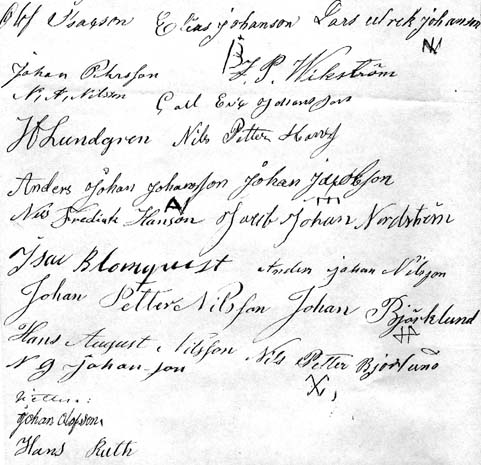 Olof Isacson Elias Johanson Lars Ulrik Johansen
Johan Pehrsson J. P. Wikström
N. A. Nilsen Carl Eric
H Lundgren Nils Petter
Anders Johan Johansson Johan Jacobson
Nils Fredrik Hanson Jacob Johan Nordström
Isac Blomquist Anders Johan Nilsson
Johan Petter Nilsson Johan Björklund
Hans August Nilsson Nils Petter Björlund
N J Johan-son
Johan Olofson
Hans Ruth